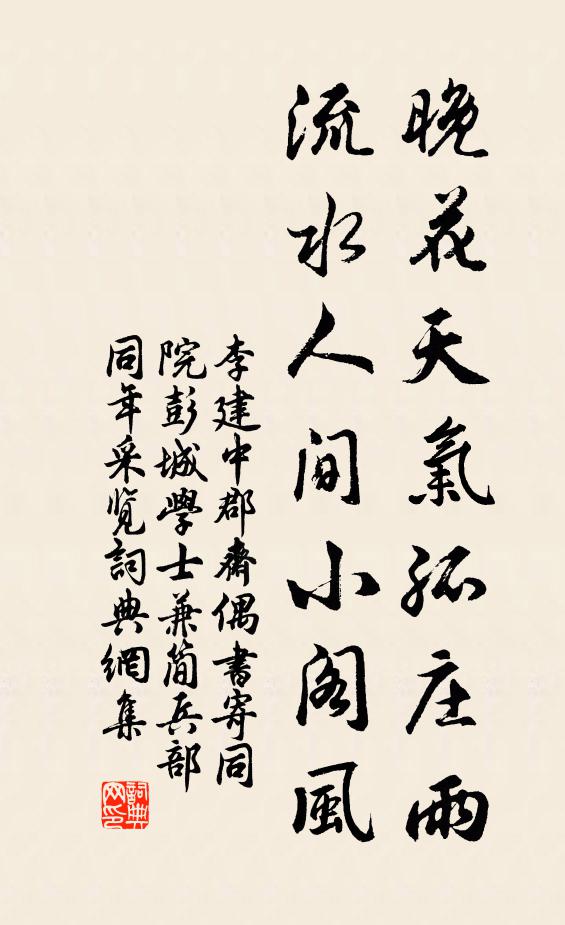 晚花天氣孤庄雨
流水人间小阁風
李建中郡齋偶書寄同
院彭城學士兼简兵部
同年采览詞典網集
詞典
网印